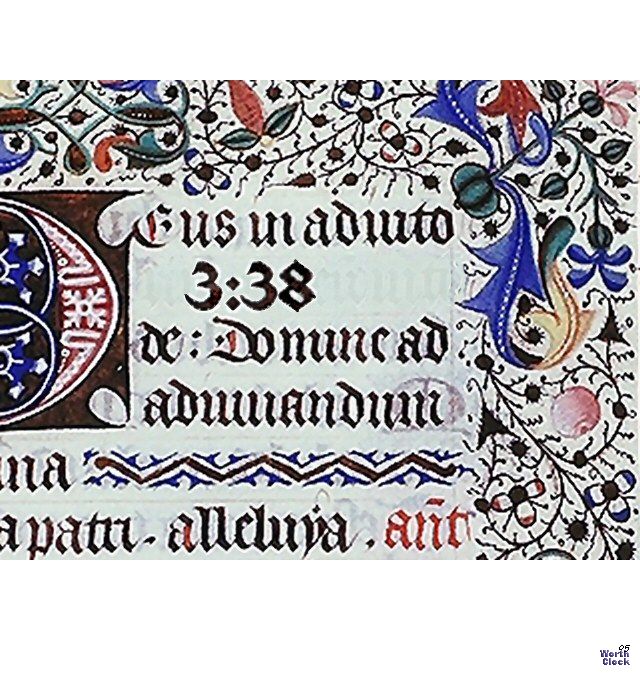 Eus in adiuto
3:38
de: Domine ad
adiuuandum
ina
a patri. alleluya. ant
05
Worth
Clock